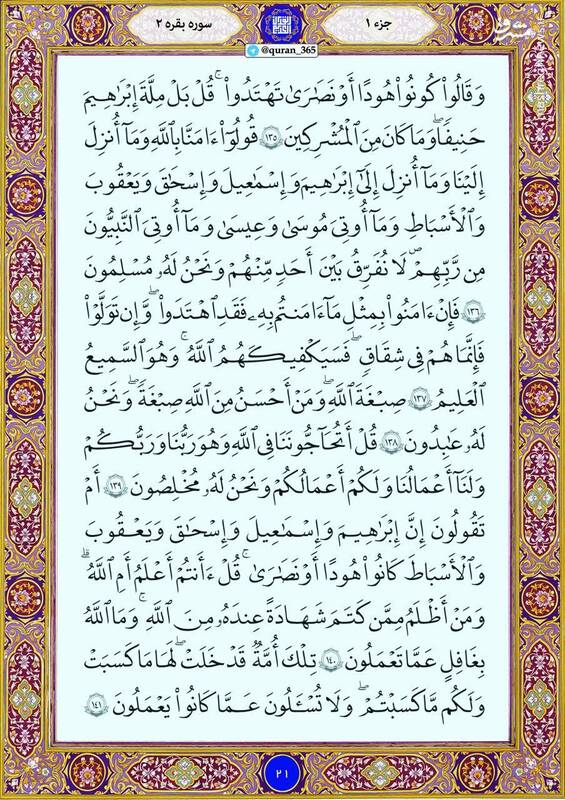 جزء ۱
سوره بقره ۲
@quran_365
مشرق
وَقَالُوا۟ كُونُوا۟ هُودًا أَوْ نَصَٰرَىٰ تَهْتَدُوا۟ ۗ قُلْ بَلْ مِلَّةَ إِبْرَٰهِيمَ
حَنِيفًا ۖ وَمَا كَانَ مِنَ ٱلْمُشْرِكِينَ ۝١٣٥ قُولُوٓا۟ ءَامَنَّا بِٱللَّهِ وَمَآ أُنزِلَ
إِلَيْنَا وَمَآ أُنزِلَ إِلَىٰٓ إِبْرَٰهِيمَ وَإِسْمَٰعِيلَ وَإِسْحَٰقَ وَيَعْقُوبَ
وَٱلْأَسْبَاطِ وَمَآ أُوتِىَ مُوسَىٰ وَعِيسَىٰ وَمَآ أُوتِىَ ٱلنَّبِيُّونَ
مِن رَّبِّهِمْ لَا نُفَرِّقُ بَيْنَ أَحَدٍ مِّنْهُمْ وَنَحْنُ لَهُۥ مُسْلِمُونَ
۝١٣٦ فَإِنْ ءَامَنُوا۟ بِمِثْلِ مَآ ءَامَنتُم بِهِۦ فَقَدِ ٱهْتَدَوا۟ ۖ وَّإِن تَوَلَّوْا۟
فَإِنَّمَا هُمْ فِى شِقَاقٍ ۖ فَسَيَكْفِيكَهُمُ ٱللَّهُ ۚ وَهُوَ ٱلسَّمِيعُ
ٱلْعَلِيمُ ۝١٣٧ صِبْغَةَ ٱللَّهِ ۖ وَمَنْ أَحْسَنُ مِنَ ٱللَّهِ صِبْغَةً ۖ وَنَحْنُ
لَهُۥ عَٰبِدُونَ ۝١٣٨ قُلْ أَتُحَآجُّونَنَا فِى ٱللَّهِ وَهُوَ رَبُّنَا وَرَبُّكُمْ
وَلَنَآ أَعْمَٰلُنَا وَلَكُمْ أَعْمَٰلُكُمْ وَنَحْنُ لَهُۥ مُخْلِصُونَ ۝١٣٩ أَمْ
تَقُولُونَ إِنَّ إِبْرَٰهِيمَ وَإِسْمَٰعِيلَ وَإِسْحَٰقَ وَيَعْقُوبَ
وَٱلْأَسْبَاطَ كَانُوا۟ هُودًا أَوْ نَصَٰرَىٰ ۗ قُلْ ءَأَنتُمْ أَعْلَمُ أَمِ ٱللَّهُ ۗ
وَمَنْ أَظْلَمُ مِمَّن كَتَمَ شَهَٰدَةً عِندَهُۥ مِنَ ٱللَّهِ ۗ وَمَا ٱللَّهُ
بِغَٰفِلٍ عَمَّا تَعْمَلُونَ ۝١٤٠ تِلْكَ أُمَّةٌ قَدْ خَلَتْ ۖ لَهَا مَا كَسَبَتْ
وَلَكُم مَّا كَسَبْتُمْ ۖ وَلَا تُسْـَٔلُونَ عَمَّا كَانُوا۟ يَعْمَلُونَ ۝١٤١
۲۱